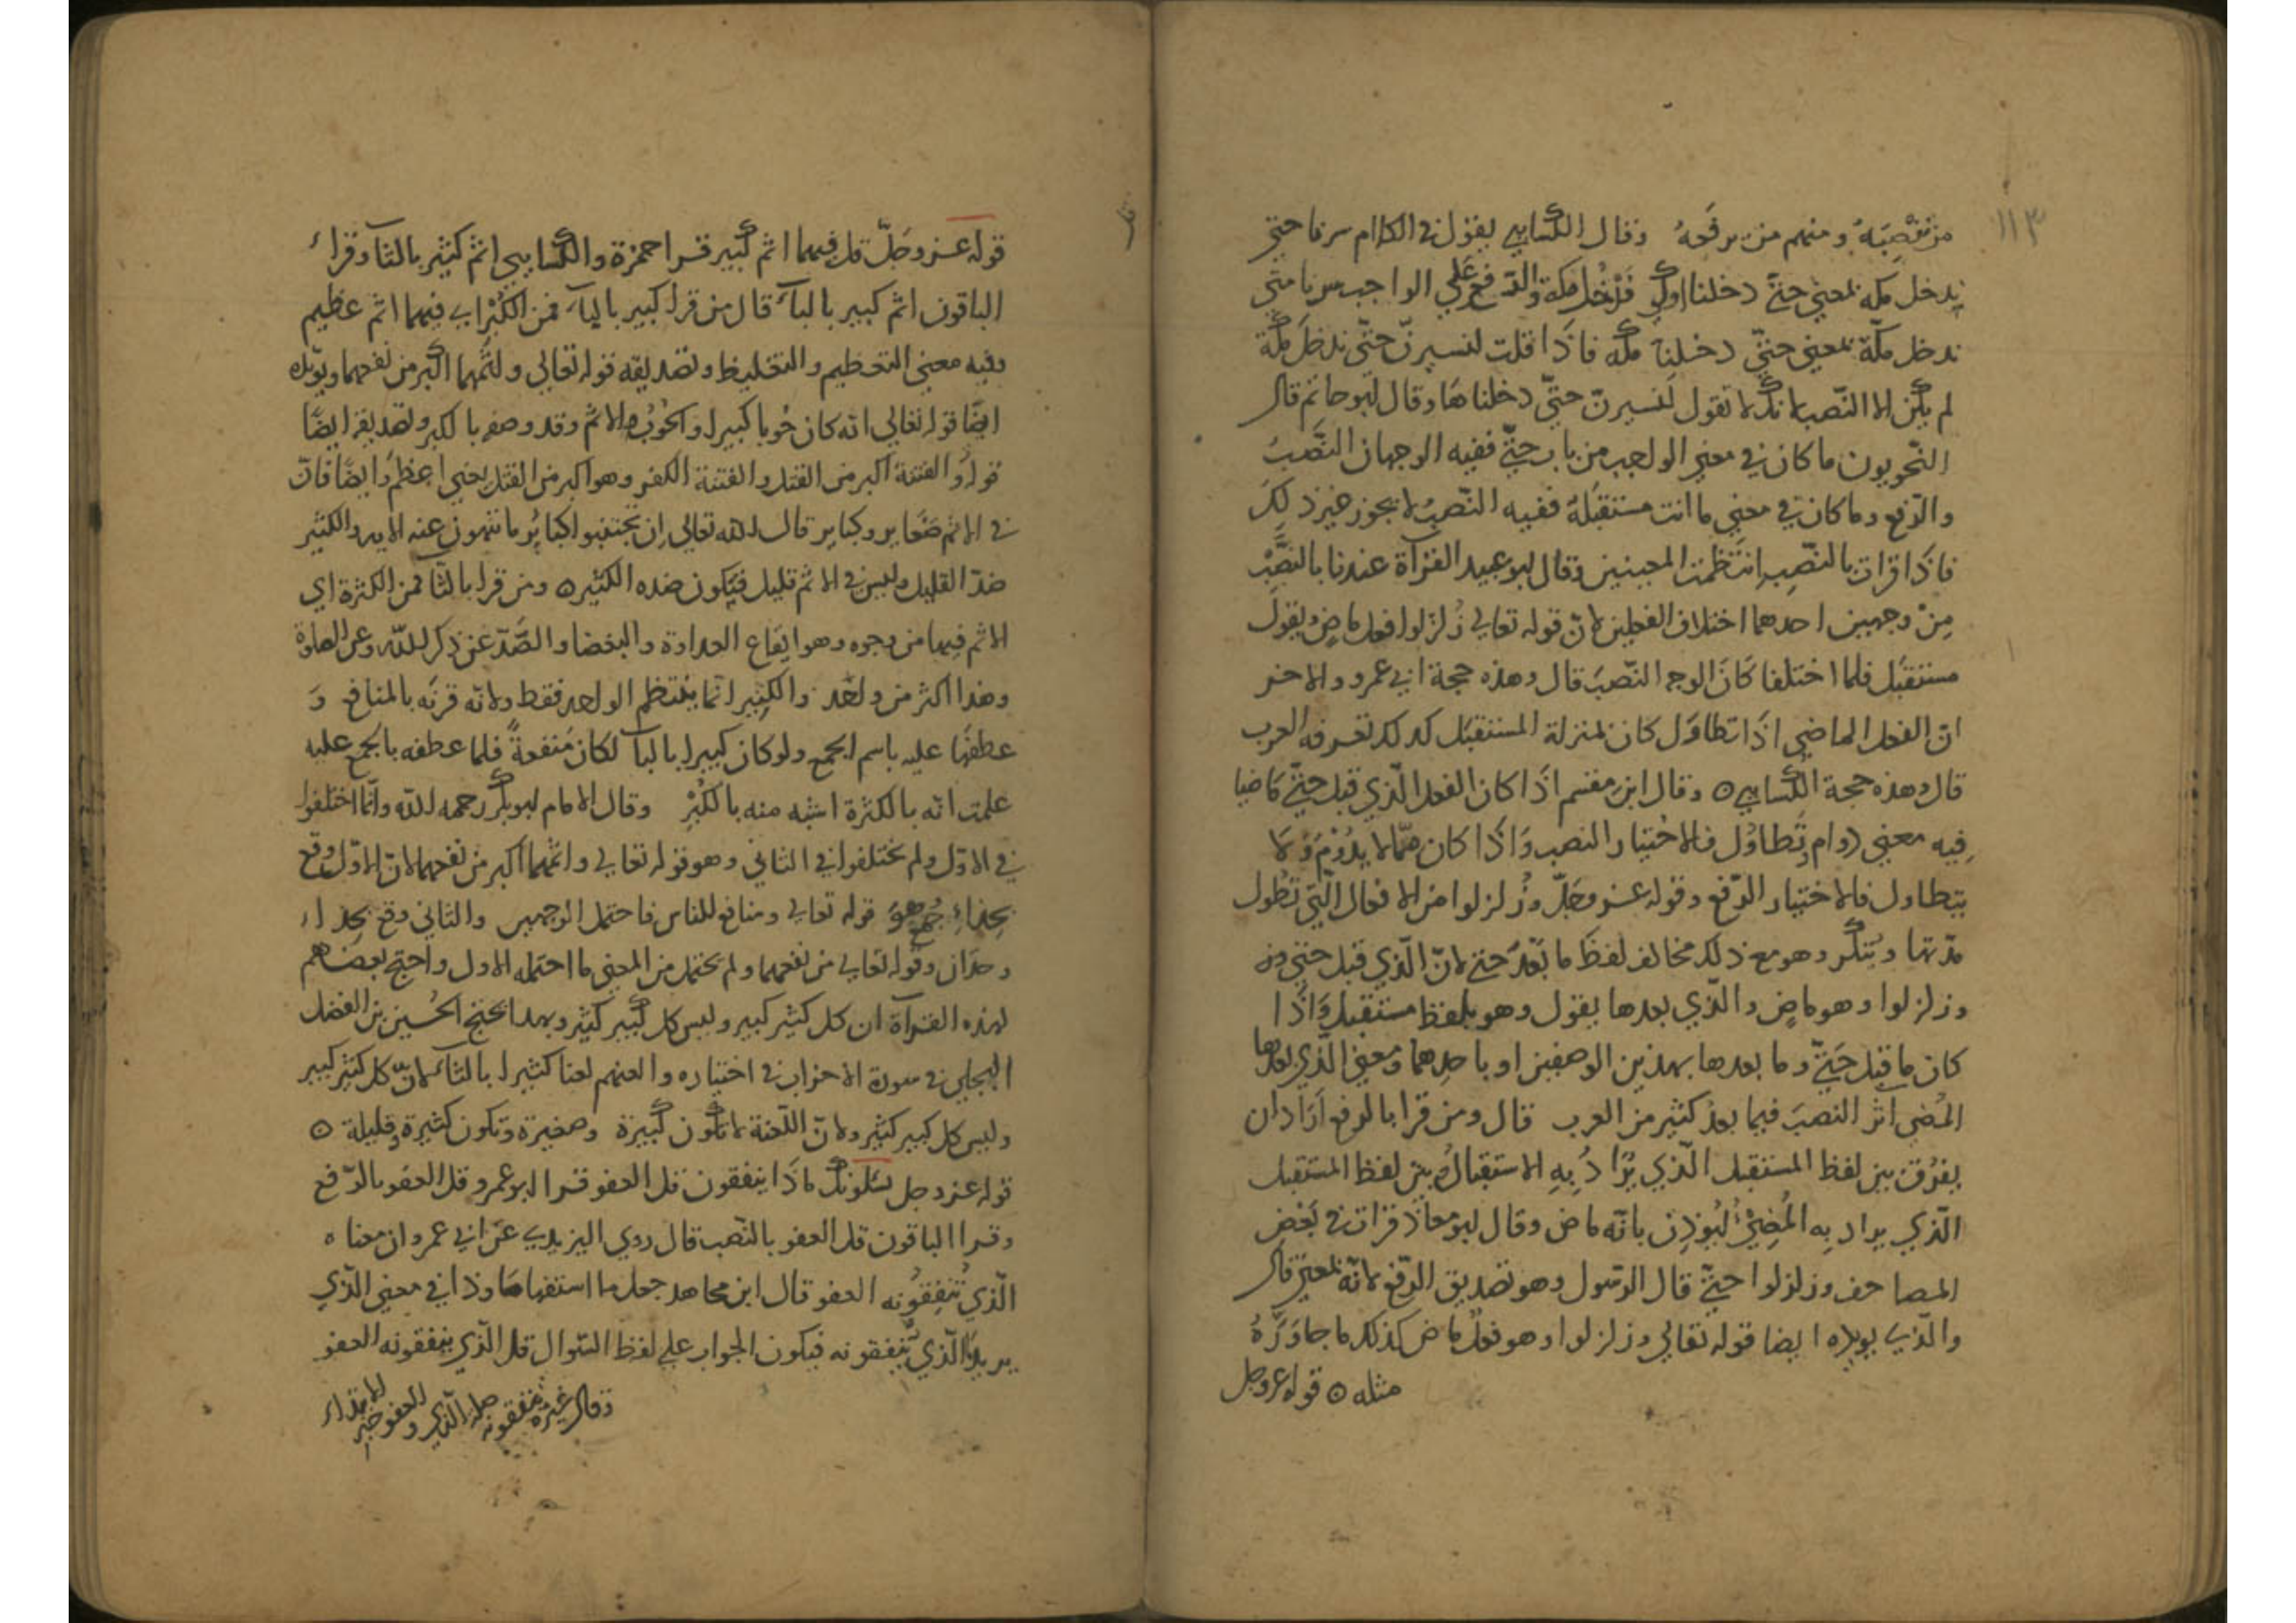 ١١٣
من نصبه ومنهم من رفعه وقال الكسايي يقول في الكلام سرنا حتي
يدخل مكة بمعني حتي دخلنا اول فندخل مكة والرفع علي الواجب سرنا متي
ندخل مكّة بمعني حتيّ دخلنا مكة فاذا قلت لنسيرنّ حتّي ندخل مكة
لم يكن الا النّصب لانك لا تقول لنسيرنّ حتيّ دخلناها وقال ابو حاتم قال
النّحويون ما كان في معني الواجب من باب حتيّ ففيه الوجهان النّصبُ
والرّفع وما كان في معني ما انت مستقبله ففيه النّصبُ لا يجوز غير ذلك
فاذا قرات بالنّصب انتظمت المعنيين وقال ابو عبيد القراة عندنا بالنّصب
مِنْ وجهين احدهما اختلاف الفعلين لانّ قوله تعالي زلزلوا فعل ماضٍ ويقول
مستقبل فلما اختلفا كان الوجه النّصب قال وهذه حجة ابي عمرو والاخر
انّ الفعل الماضي اذا تطاول كان بمنزلة المستقبل كذلك تعرفه العرب
قال وهذه حجة الكسايي ه وقال ابن مقسم اذا كان الفعل الّذي قبل حتيّ ماضيا
فيه معني دوام وتطاول فالاختيار النصب واذا كان ممّا لا يدوم ولا
يتطاول فالاختيار الرّفع وقوله عز وجلّ وزُلزلوا من الافعال الّتي تطول
مدّتها وتتكرّر وهو مع ذلك مخالف لفظ ما بعد حتيّ لانّ الّذي قبل حتي
وزلزلوا وهو ماضٍ والّذي بعدها يقول وهو بلفظ مستقبل واذا
كان ما قبل حَتيّ وما بعدها بهذين الوصفين او باحدهما ومعني الّذي بعدها
المُضي اثر النصب فيما بعد كثير من العرب قال ومن قرا بالرفع اراد ان
يفرق بين لفظ المستقبل الّذي يُرادُ بِهِ الاستقبال وبين لفظ المستقبل
الّذي يراد بِه المُضِيُّ ليُوذِن بانّه ماض وقال ابو معاذ قرات في بعض
المصاحف وزلزلوا حتيّ قال الرسول وهو تصديق الرّفع لانّه بمعني قال
والّذي يويده ايضا قوله تعالي وزلزلوا وهو فعلٌ ماض كذلك ما جاوَرَهُ
مثله ه قوله عز وجل
قوله عز وجلّ قل فيهما اثم كبير قرا حمزة والكسايي اثم كثير بالثا وقراء
الباقون اثم كبير بالباء قال من قرا كبير بالباء فمن الكُبْر اي فيهما اثم عظيم
وفيه معني التعظيم والتغليظ وتصديقه قوله تعالي واثمهما اكبر من نفعهما ويويده
ايضًا قوله تعالي انه كان حُوبا كبيرا والحُوبُ الاثم وقد وصفه بالكبر وتصديقه ايضًا
قوله والفتنة اكبر من القتل والفتنة الكفر وهو اكبر من القتل يعني اعظم وايضًا فانّ
في الاثم صغاير وكباير قال الله تعالي اِن تجتنبوا كبايُر ما تنهون عنه الايه والكثير
ضدّ القليل وليس في الاثم قليل فيكون ضده الكثير ه ومن قرا بالثّا فمن الكثرة اي
الاثم فيهما من وجوه وهو ايقاع العداوة والبغضا والصَّدّ عن ذكر الله وعن الصلوة
وهذا اكثر من واحد والكبير انّما ينتظم الواحد فقط ولانّه قرنَه بالمنافع وَ
عطفها عليه باسم الجمع ولو كان كبيرا بالباَ لكان منفعةً فلما عطفه بالجمع عليه
علمت انّه بالكثرة اشبه منه بالكُبْرِ وقال الامام ابو بكر رحمه الله وانّما اختلفوا
في الاوّل ولم يختلفوا في الثاني وهو قوله تعالي واثمهما اكبر من نفعهما لانّ الاوّل وقع
بحذاءِ جُمعٍ وهو قوله تعالي ومنافع للناس فاحتمل الوجهين والثاني وقع بحذاء
وحدان وقوله تعالي من نفعهما ولم يحتمل من المعني ما احتمله الاول واحتج بعضهم
لهذه القراة ان كل كثير كبير وليس كل كبير كثير وبهذا يحتج الحُسين بن الفضل
البجلي في سورة الاحزاب في اختياره والعنهم لعنا كثيرا بالثاء لانّ كل كثير كبير
وليس كل كبير كثير ولانّ اللّعنة لا تكون كبيرة وصغيرة وتكون كثيرة وقليلة ه
قوله عز وجل يسئلونك ماذا ينفقون قل العفو قرا ابو عمرو قل العفو بالرّفع
وقرا الباقون قل العفو بالنّصب قال روي اليزيدي عن ابي عمرو ان معناه
الّذي تُنفِقُونه العفو قال ابن مجاهد جعل ما استفهاما وذا في معني الّذي
يريد ما الّذي ينفقونه فيكون الجواب علي لفظ السّوال قل الّذي ينفقونه العفو
وقال غيره ينفقونه صلة الّذي والعفو خبر الابتداء